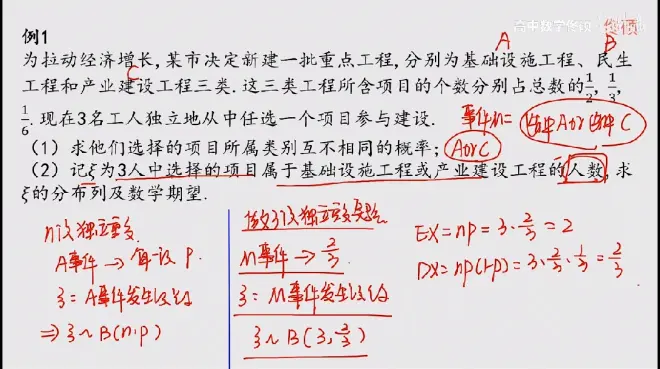 高中数学
例1
A
B
为拉动经济增长,某市决定新建一批重点工程,分别为基础设施工程、民生
C
工程和产业建设工程三类.这三类工程所含项目的个数分别占总数的1/2,1/3,
1/6.现在3名工人独立地从中任选一个项目参与建设.
事件M=
选中A or 选中C
(1)求他们选择的项目所属类别互不相同的概率;
A or C
(2)记ξ为3人中选择的项目属于基础设施工程或产业建设工程的人数,求
ξ的分布列及数学期望.
n次独立重复
A事件→每次 P.
ξ=A事件发生次数
⇒ξ~B(n·p)
做3次独立重复实验
M事件→2/3
ξ=M事件发生次数
ξ~B(3,2/3)
EX=np=3·2/3=2
DX=np(1-p)=3·2/3·1/3=2/3